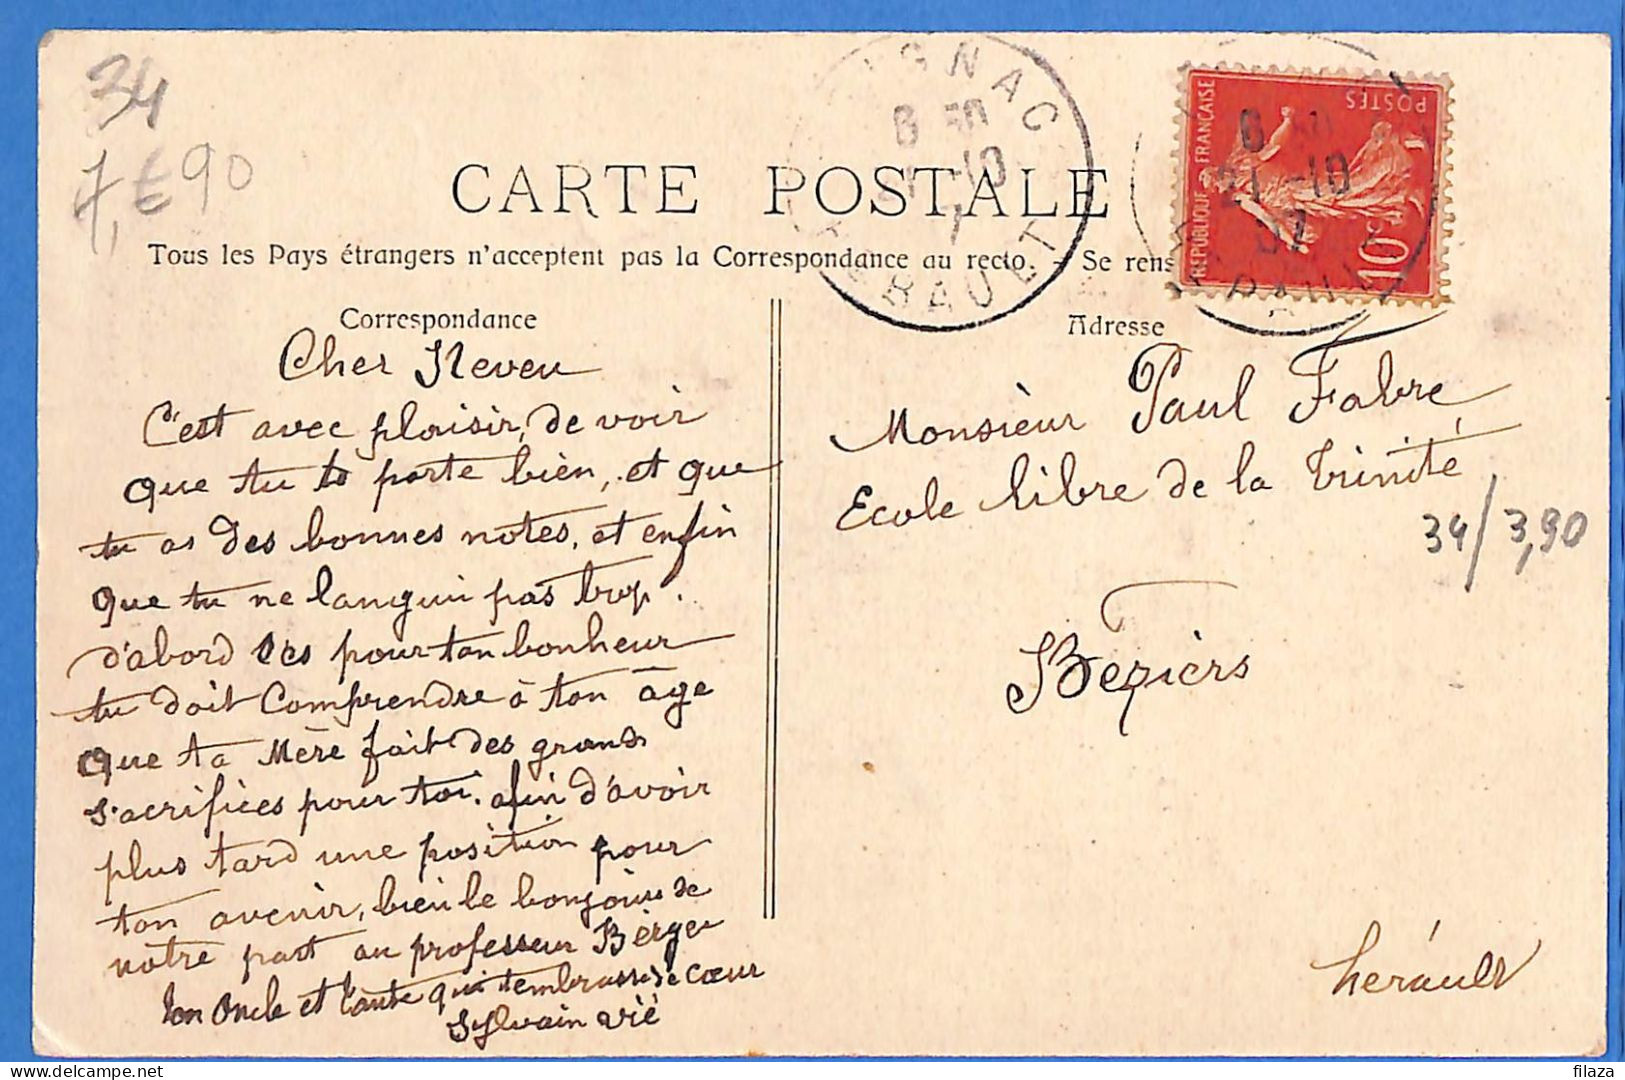 34
7,€90
CARTE POSTALE
Tous les Pays étrangers n'acceptent pas la Correspondance au recto. - Se rens
IGNAC
6 30
10
7
HERAULT
REPUBLIQUE FRANÇAISE
POSTES
10c
6
21 -10
07
Correspondance
Cher Neveu
C'est avec plaisir, de voir
que tu te porte bien, et que
tu as des bonnes notes, et enfin
que tu ne languis pas trop.
d'abord c'es pour ton bonheur
tu doit Comprendre à ton âge
que ta Mère fait des grands
sacrifices pour toi. afin d'avoir
plus tard une position pour
ton avenir, bien le bonjour de
notre part au professeur Berger
ton Oncle et tante qui t'embrasse de cœur
Sylvain Vié
Adresse
Monsieur Paul Fabre
Ecole libre de la Trinité
34/3,90
Béziers
herault
filaza
delcampe.net